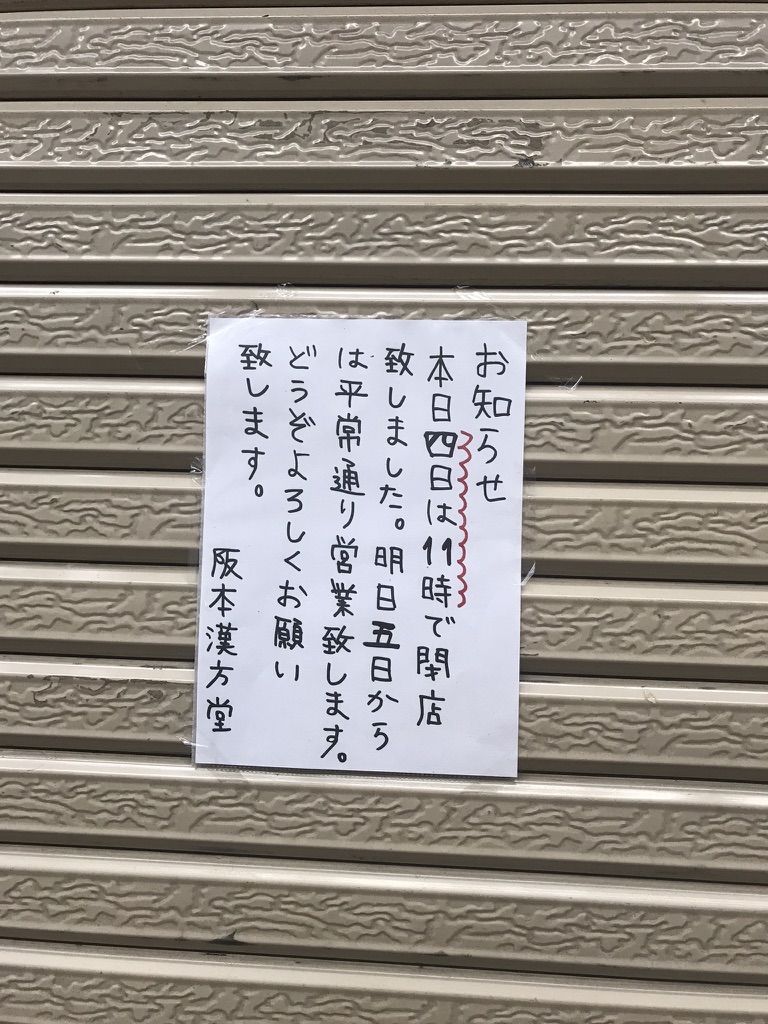 お知らせ
本日四日は11時で閉店
致しました。明日五日から
は平常通り営業致します。
どうぞよろしくお願い
致します。
阪本漢方堂